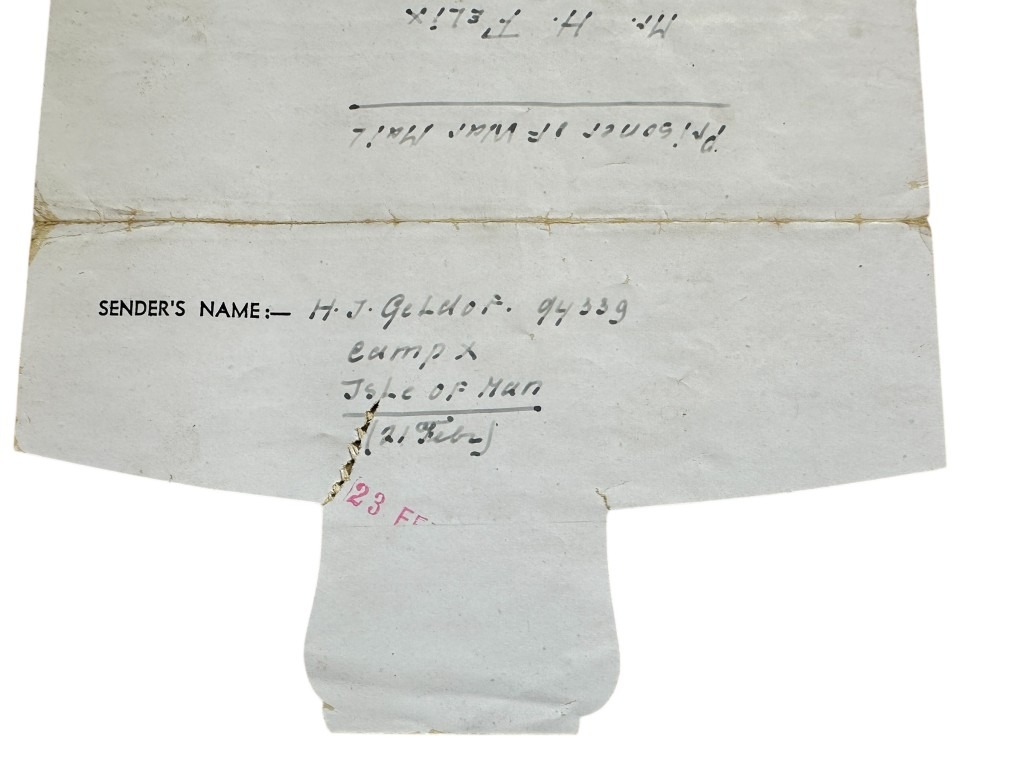 Mr. H. Felix
Prisoner of War Mail
SENDER'S NAME:— H. J. Geldof. 94339
Camp X
Isle of Man
(21 Feb.)
23 FE